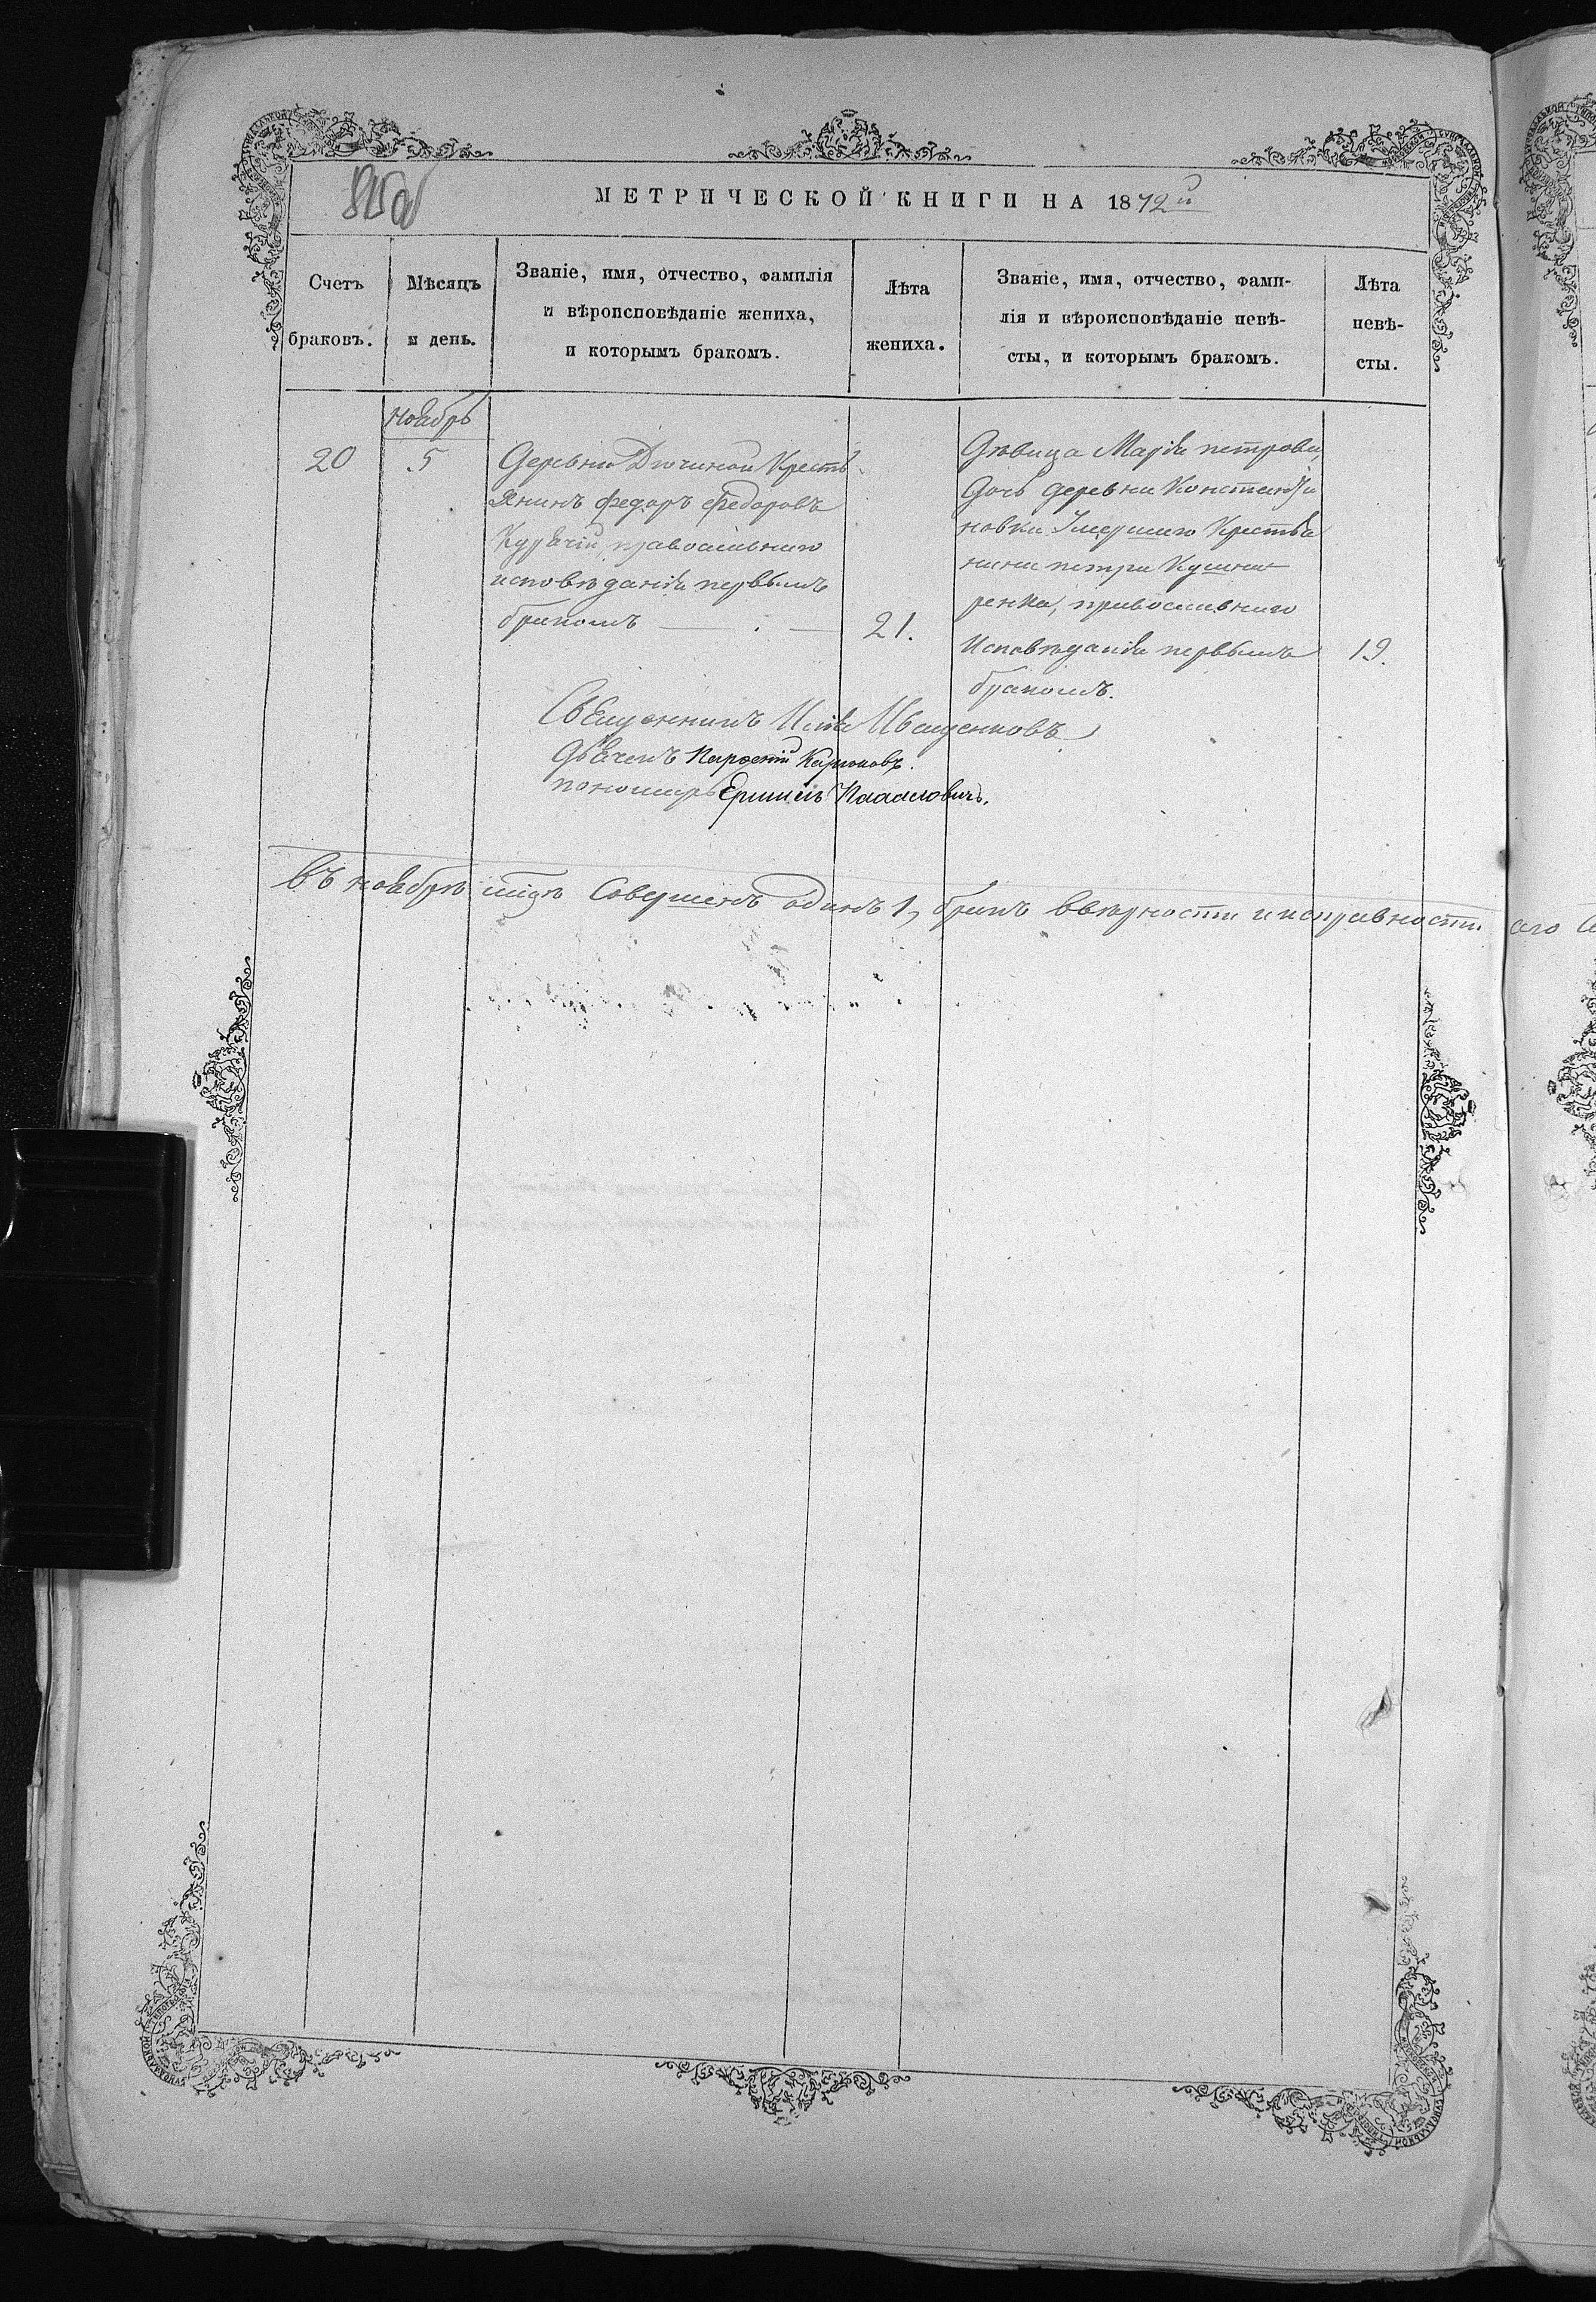 МЕТРИЧЕСКОЙ КНИГИ НА 1872й
Счетъ браковъ.
Мѣсяцъ и день.
Званіе, имя, отчество, фамилія
и вѣроисповѣданіе жениха,
и которымъ бракомъ.
Лѣта жениха.
Званіе, имя, отчество, фами-
лія и вѣроисповѣданіе невѣ-
сты, и которымъ бракомъ.
Лѣта невѣ-
сты.
Ноябрь
20
5
Деревни Дючиной Кресть
янинъ Федоръ Федоровъ
православнаго
исповѣданія первымъ
бракомъ
21.
Дѣвица Марія петрова,
дочь деревни Константи
новки Умершаго Крестья
нина петра Кушна
ренка, православнаго
Исповѣданія первымъ
бракомъ.
19.
Священникъ Илія Иващенковъ
Дьячекъ Парѳеній
пономарь
въ ноябрѣ мцѣ Совершенъ одинъ 1, бракъ ввѣрности и исправности сего